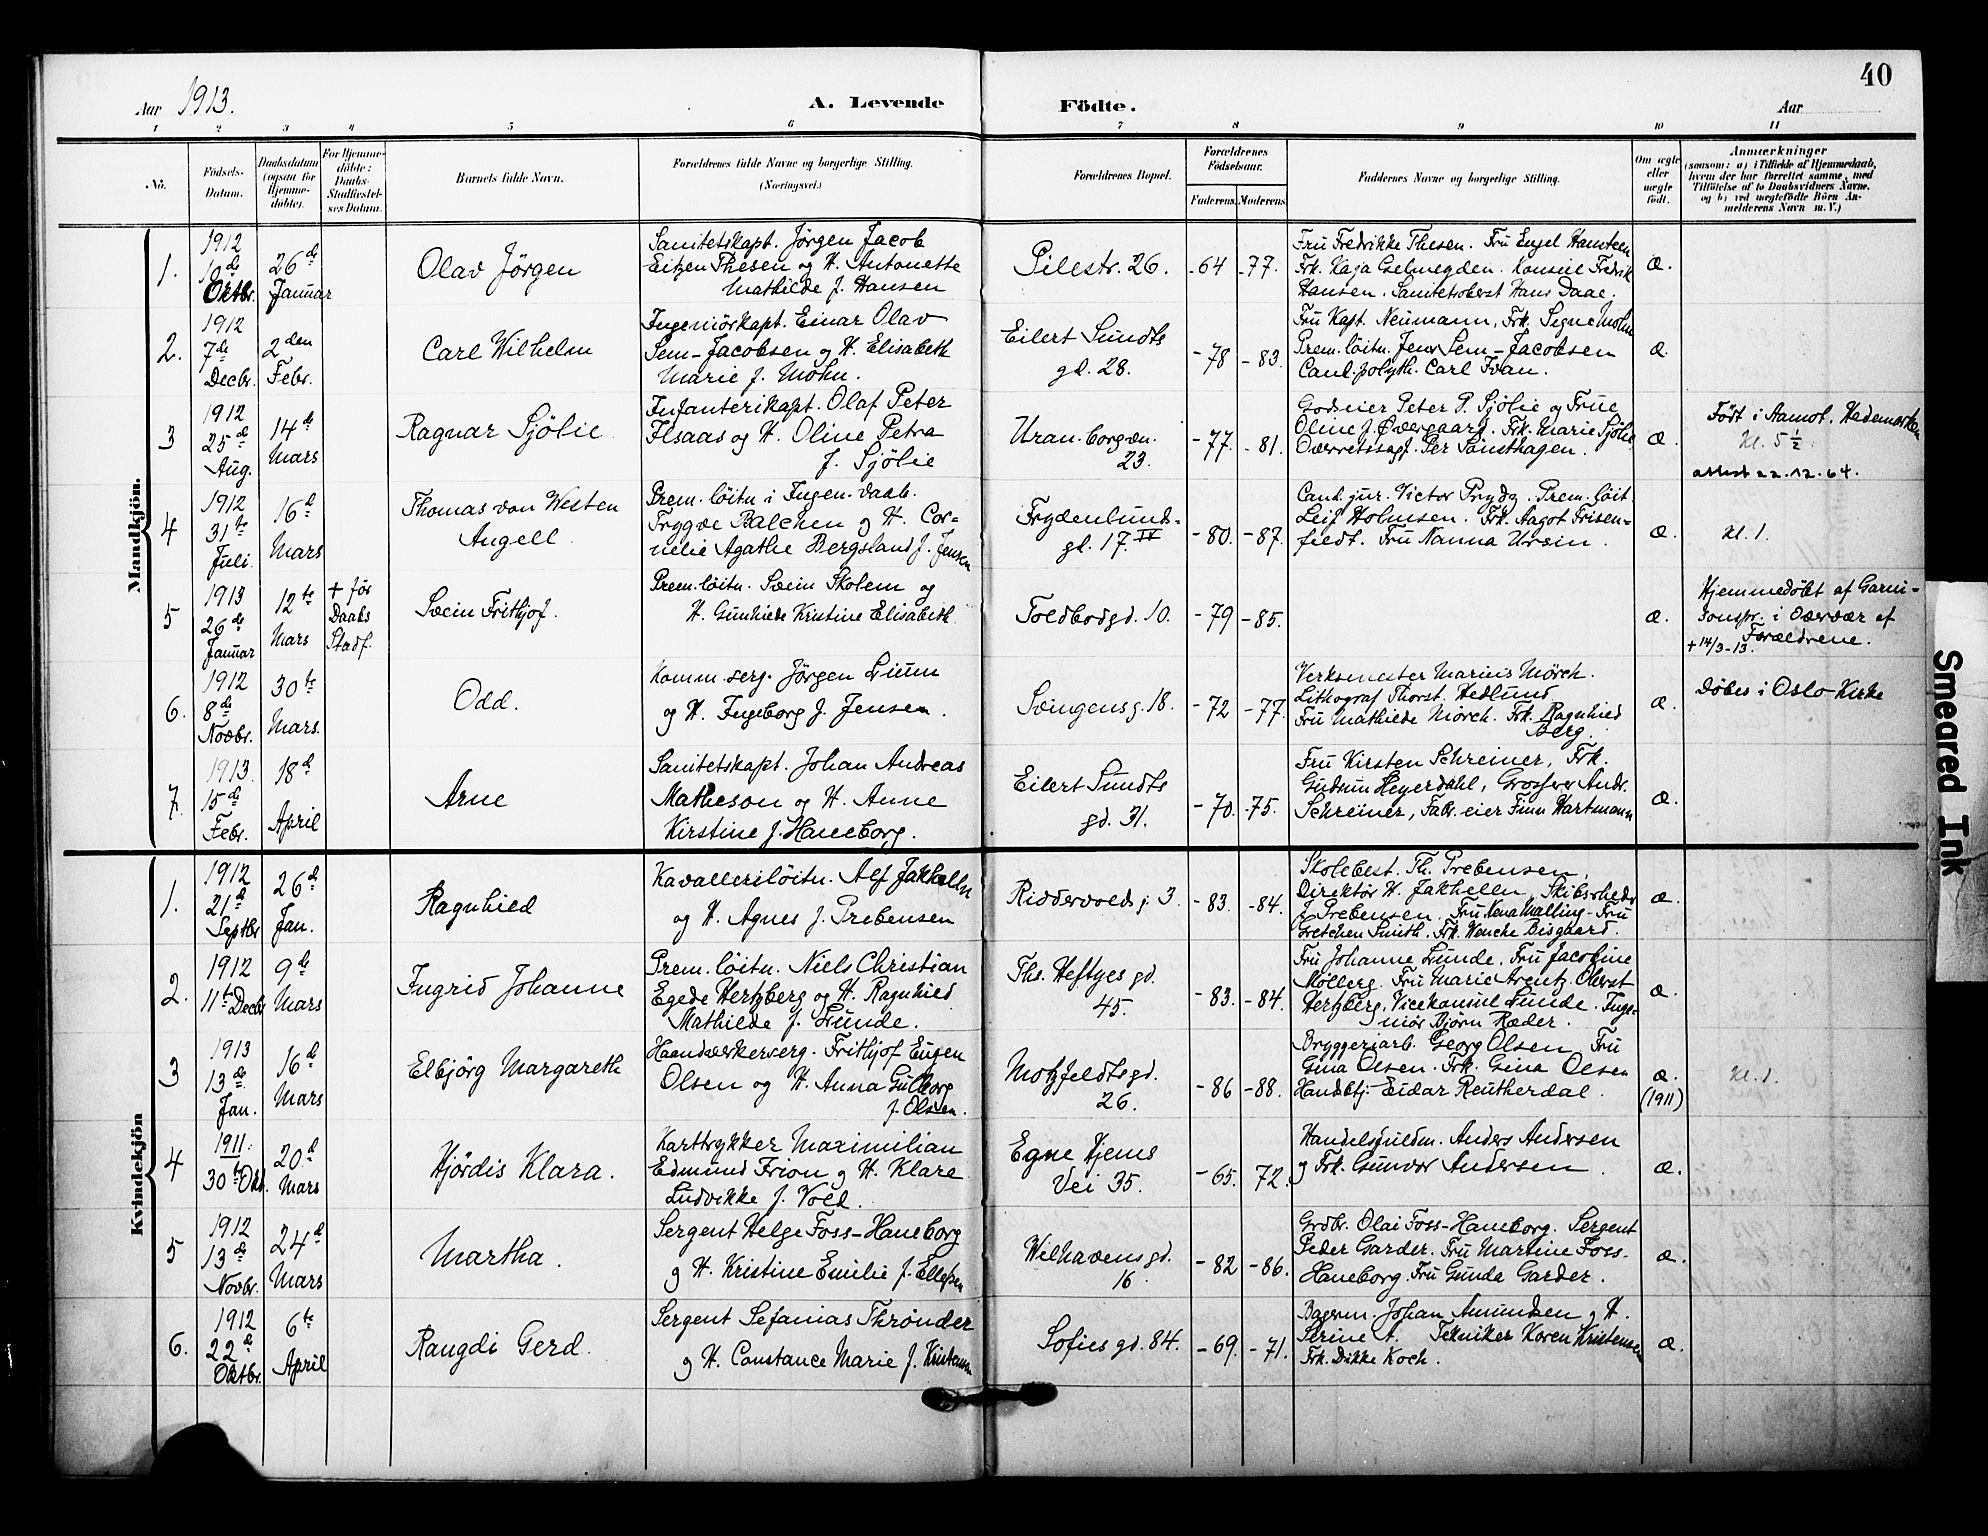 40
Aar 1913.
A. Levende Födte.
Aar
1 2 3 4 5 6 7 8 9 10 11
Nö.
Födsels-
Datum.
Daabsdatum
(ogsaa for
Hjemme-
döbte).
For Hjemme-
döbte:
Daabs-
Stadfæstel-
ses Datum.
Barnets fulde Navn.
Forældrenes fulde Navne og borgerlige Stilling.
(Næringsvei.)
Forældrenes Bopæl.
Forældrenes
Födselsaar.
Faderens. Moderens.
Faddernes Navne og borgerlige Stilling.
Om ægte
eller
uægte
födt.
Anmærkninger
(saasom: a) i Tilfælde af Hjemmedaab,
hvem der har forrettet samme, med
Tilföielse af to Daabsvidners Navne,
og b) ved uægtefödte Börn An-
melderens Navn m. V.)
Mandkjön.
1.
1912
10de
Oktbr.
26de
Januar
Olav Jörgen
Sanitetskapt. Jörgen Jacob
Eitzen Thesen og H. Antonette
Mathilde f. Hansen
Pilestr. 26.
-64 -77.
Fru Fredrikke Thesen. Fru Engel Hansteen
Frk. Kaja Gselmegden. Konsul Fredrik
Hansen. Sanitetsoberst Hans Daae.
æ.
2.
1912
7de
Decbr.
2den
Febr.
Carl Wilhelm
Ingeniörkapt. Einar Olav
Sem-Jacobsen og H. Elisabeth
Marie f. Mohn.
Eilert Sundts
gd. 28.
-78 -83.
Fru Kapt. Neumann, Frk. Signe Mohn
Prem. löitn. Jens Sem-Jacobsen
Cand. polyth. Carl Ivan.
æ.
3
1912
25de
Aug.
14de
Mars
Ragnar Sjölie
Infanterikapt. Olaf Peter
Ilsaas og H. Oline Petra
f. Sjölie
Uranborgvn.
23.
-77. -81.
Godseier Peter P. Sjölie og Frue
Oline f. Övergaard. Frk. Marie Sjölie
Overretssagf. Per Sönsthagen.
æ.
Födt i Aamot. Hedemarken
Kl. 5 1/2
attest 22.12.64.
4
1912
31te
Juli.
16de
Mars
Thomas von Westen
Angell.
Prem. löitn i Ingen. vaab.
Tryggve Balchen og H. Cor-
nelie Agathe Bergsland f. Jensen
Frydenlunds-
gd. 17. IV
-80. -87.
Cand. jur. Victor Prydz. Prem. löit.
Leif Holmsen. Frk. Aagot Frisen-
feldt. Fru Nanna Ursin.
æ.
Kl. 1.
5
1913
26de
Januar
12te
Mars
+ för
Daabs
Stadf.
Svein Frithjof.
Prem. löitn. Svein Skolem og
H. Gunhilde Kristine Elisabeth
Toldbodgd. 10.
-79 -85.
æ.
Hjemmedöbt af Garni-
sonspr. i Overvær af
Forældrene.
+ 14/3-13.
6.
1912
8de
Novbr.
30te
Mars.
Odd.
Komm. serg. Jörgen Lium
og H. Ingeborg f. Jensen.
Sörengens g. 18.
-72 -77.
Verksmester Marius Mörch.
Lithograf Thorst. Hedlund
Fru Mathilde Mörch. Frk. Ragnhild
Berg.
æ.
Döbes i Oslo Kirke
7.
1913.
15de
Febr.
18de
April
Arne
Sanitetskapt. Johan Andreas
Matheson og H. Anne
Kirstine f. Haneborg.
Eilert Sundts
gd. 31.
-70. -75.
Fru Kirsten Schreiner, Frk.
Gudrun Heyerdahl, Grosserer Andr.
Schreiner, Fabr. eier Finn Hartmann
æ.
Kvindekjön
1.
1912
21de
Septbr
26de
Jan.
Ragnhild
Kavallerilöitn. Alf Jakhelln
og H. Agnes f. Prebensen
Riddervolds g. 3.
-83. -84.
Skolebest. Th. Prebensen,
Direktör H. Jakhelln, Skibsrheder
J. Prebensen. Fru Kena Malling. Fru
Gretchen Smith. Frk. Wenche Bisgaard.
æ.
2.
1912
11te Decbr
9de
Mars
Ingrid Johanne
Prem. löitn. Niels Christian
Egede Hertzberg og H. Ragnhild
Mathilde f. Lunde.
Ths. Heftyes gd.
45.
-83. -84.
Fru Johanne Lunde. Fru Jacobine
Mollerg. Fru Marie Arentz. Oberst
Hertzberg. Vicekonsul Lunde. Inge-
niör Björn Ræder.
æ.
3
1913
13de
Jan.
16de
Mars
Elbjörg Margareth
Haandverkerserg. Frithjof Eugen
Olsen og H. Anna Gulborg
f. Olsen.
Motzfeldtsgd.
26.
-86 -88.
Bryggeriarb. Georg Olsen, Fru
Gina Olsen. Frk. Gina Olsen
Handelsbtj. Eidar Reutherdal.
æ.
(1911)
Kl. 1.
4
1911.
30te Okt.
20de
Mars
Hjördis Klara.
Karttrykker Maximilian
Edmund Frion og H. Klare
Ludvikke f. Vold.
Egne Hjems
Vei 35.
-65. 72.
Handelsfuldm. Anders Andersen
og Frk. Gunvor Andersen.
æ.
5
1912
13de
Novbr.
24de
Mars
Martha.
Sergent Helge Foss-Haneborg
og H. Kristine Emilie f. Ellefsen
Wilhavensgd.
16.
-82 -86.
Grdbr. Olai Foss-Haneborg. Sergent
Peder Garder. Fru Martine Foss-
Haneborg. Fru Gunda Garder.
æ.
6.
1912
22de
Oktbr.
6te
April
Raugdi Gerd.
Sergent Sefanias Thrönder
og H. Constance Marie f. Kristensen
Sofies gd. 84.
-69. -71.
Bagerm. Johan Amundsen og H.
Serine A. Tekniker Koren Kristensen
Frk. Dikke Koch.
æ.
Smeared Ink